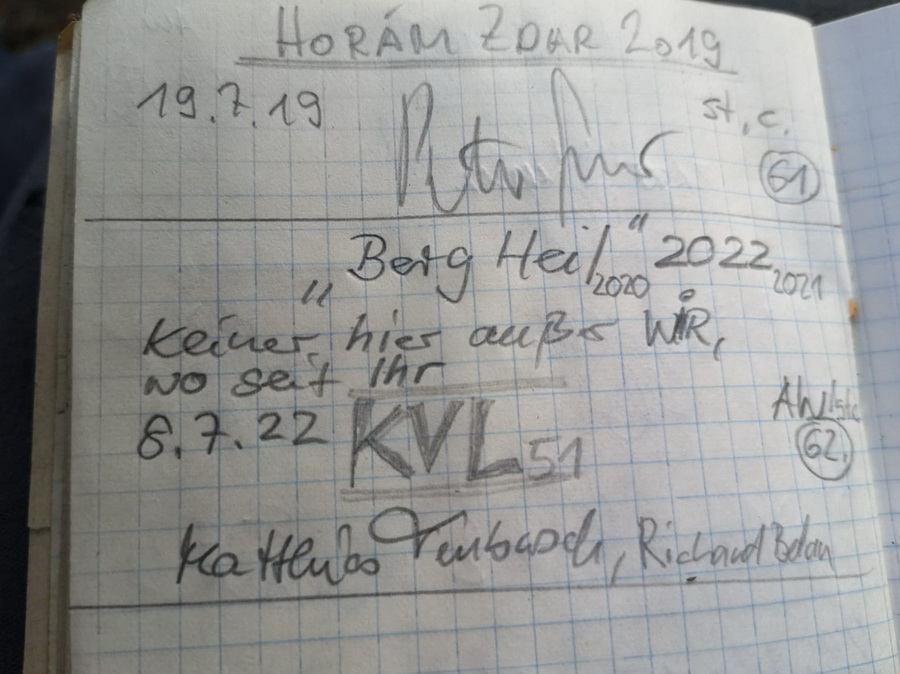 HORÁM ZDAR 2019
19.7.19 st. c.
61
"Berg Heil" 2022
2020 2021
Keiner hier außer WIR,
wo seit Ihr
8.7.22 KVL 51
62.
Richard